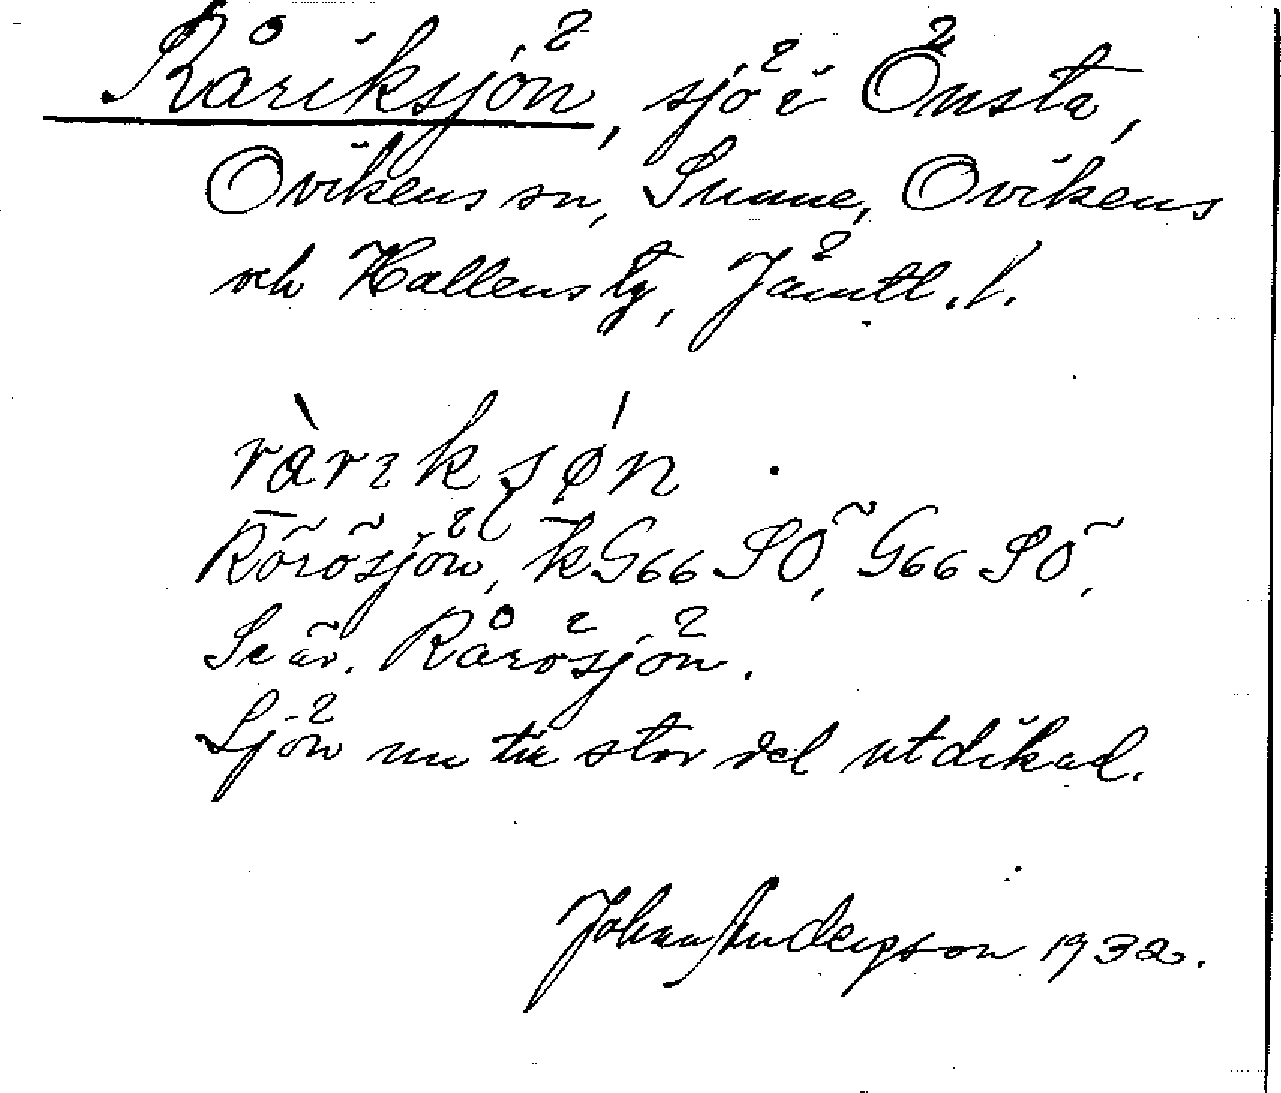 Råriksjön, sjö i Önsta,
Ovikens sn, Sunne, Ovikens
och Hallens tg, Jämtl. l.
ràriksøn
Rörösjön, kG66 SÖ, G66 SÖ.
Se äv. Rårösjön.
Sjön nu till stor del utdikad.
Johan Anderson 1932.